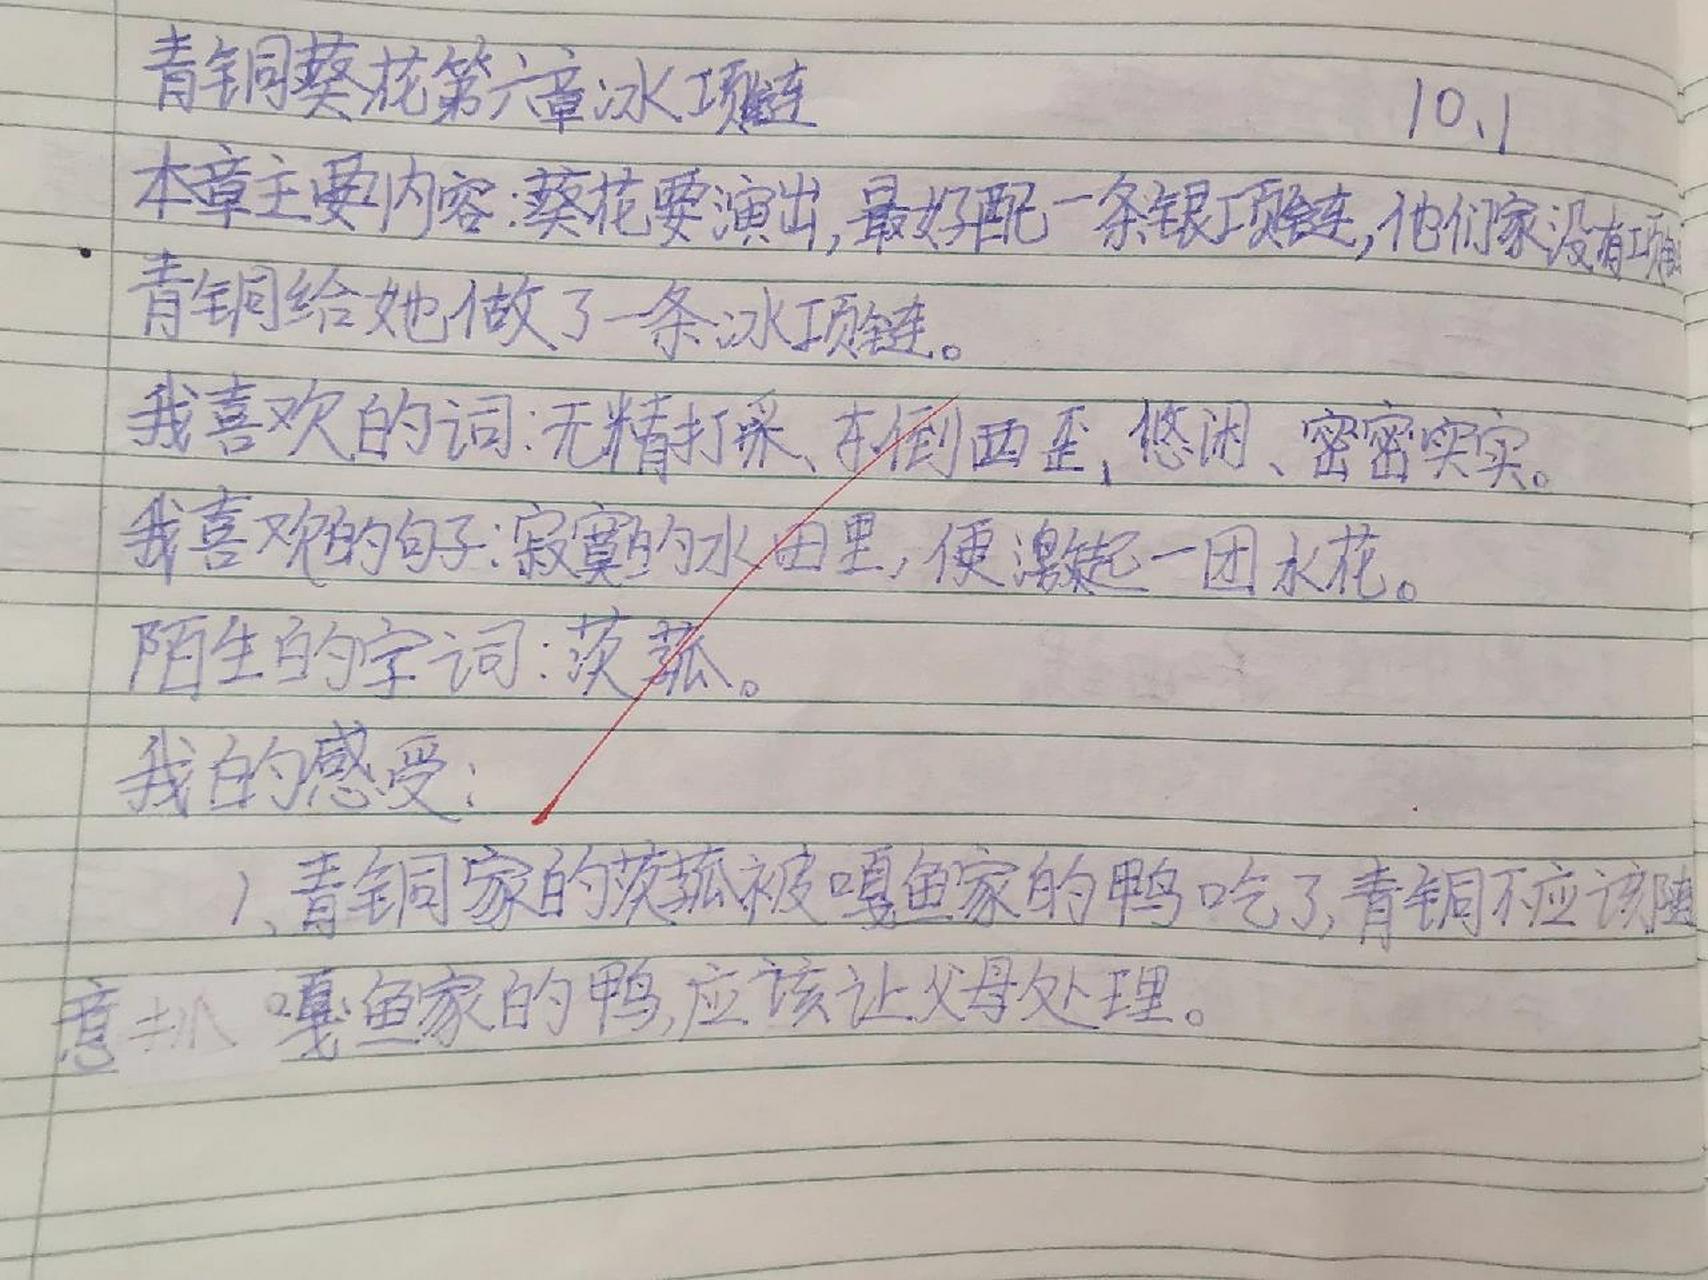 青铜葵花第六章冰项链 10、1
本章主要内容:葵花要演出,最好配一条银项链,他们家没有项链
青铜给她做了一条冰项链。
我喜欢的词:无精打采、东倒西歪,悠闲、密密实实。
我喜欢的句子:寂寞的水田里,便激起一团水花。
陌生的字词:茨菰。
我的感受:
1、青铜家的茨菰被嘎鱼家的鸭吃了,青铜不应该随
意 嘎鱼家的鸭,应该让父母处理。